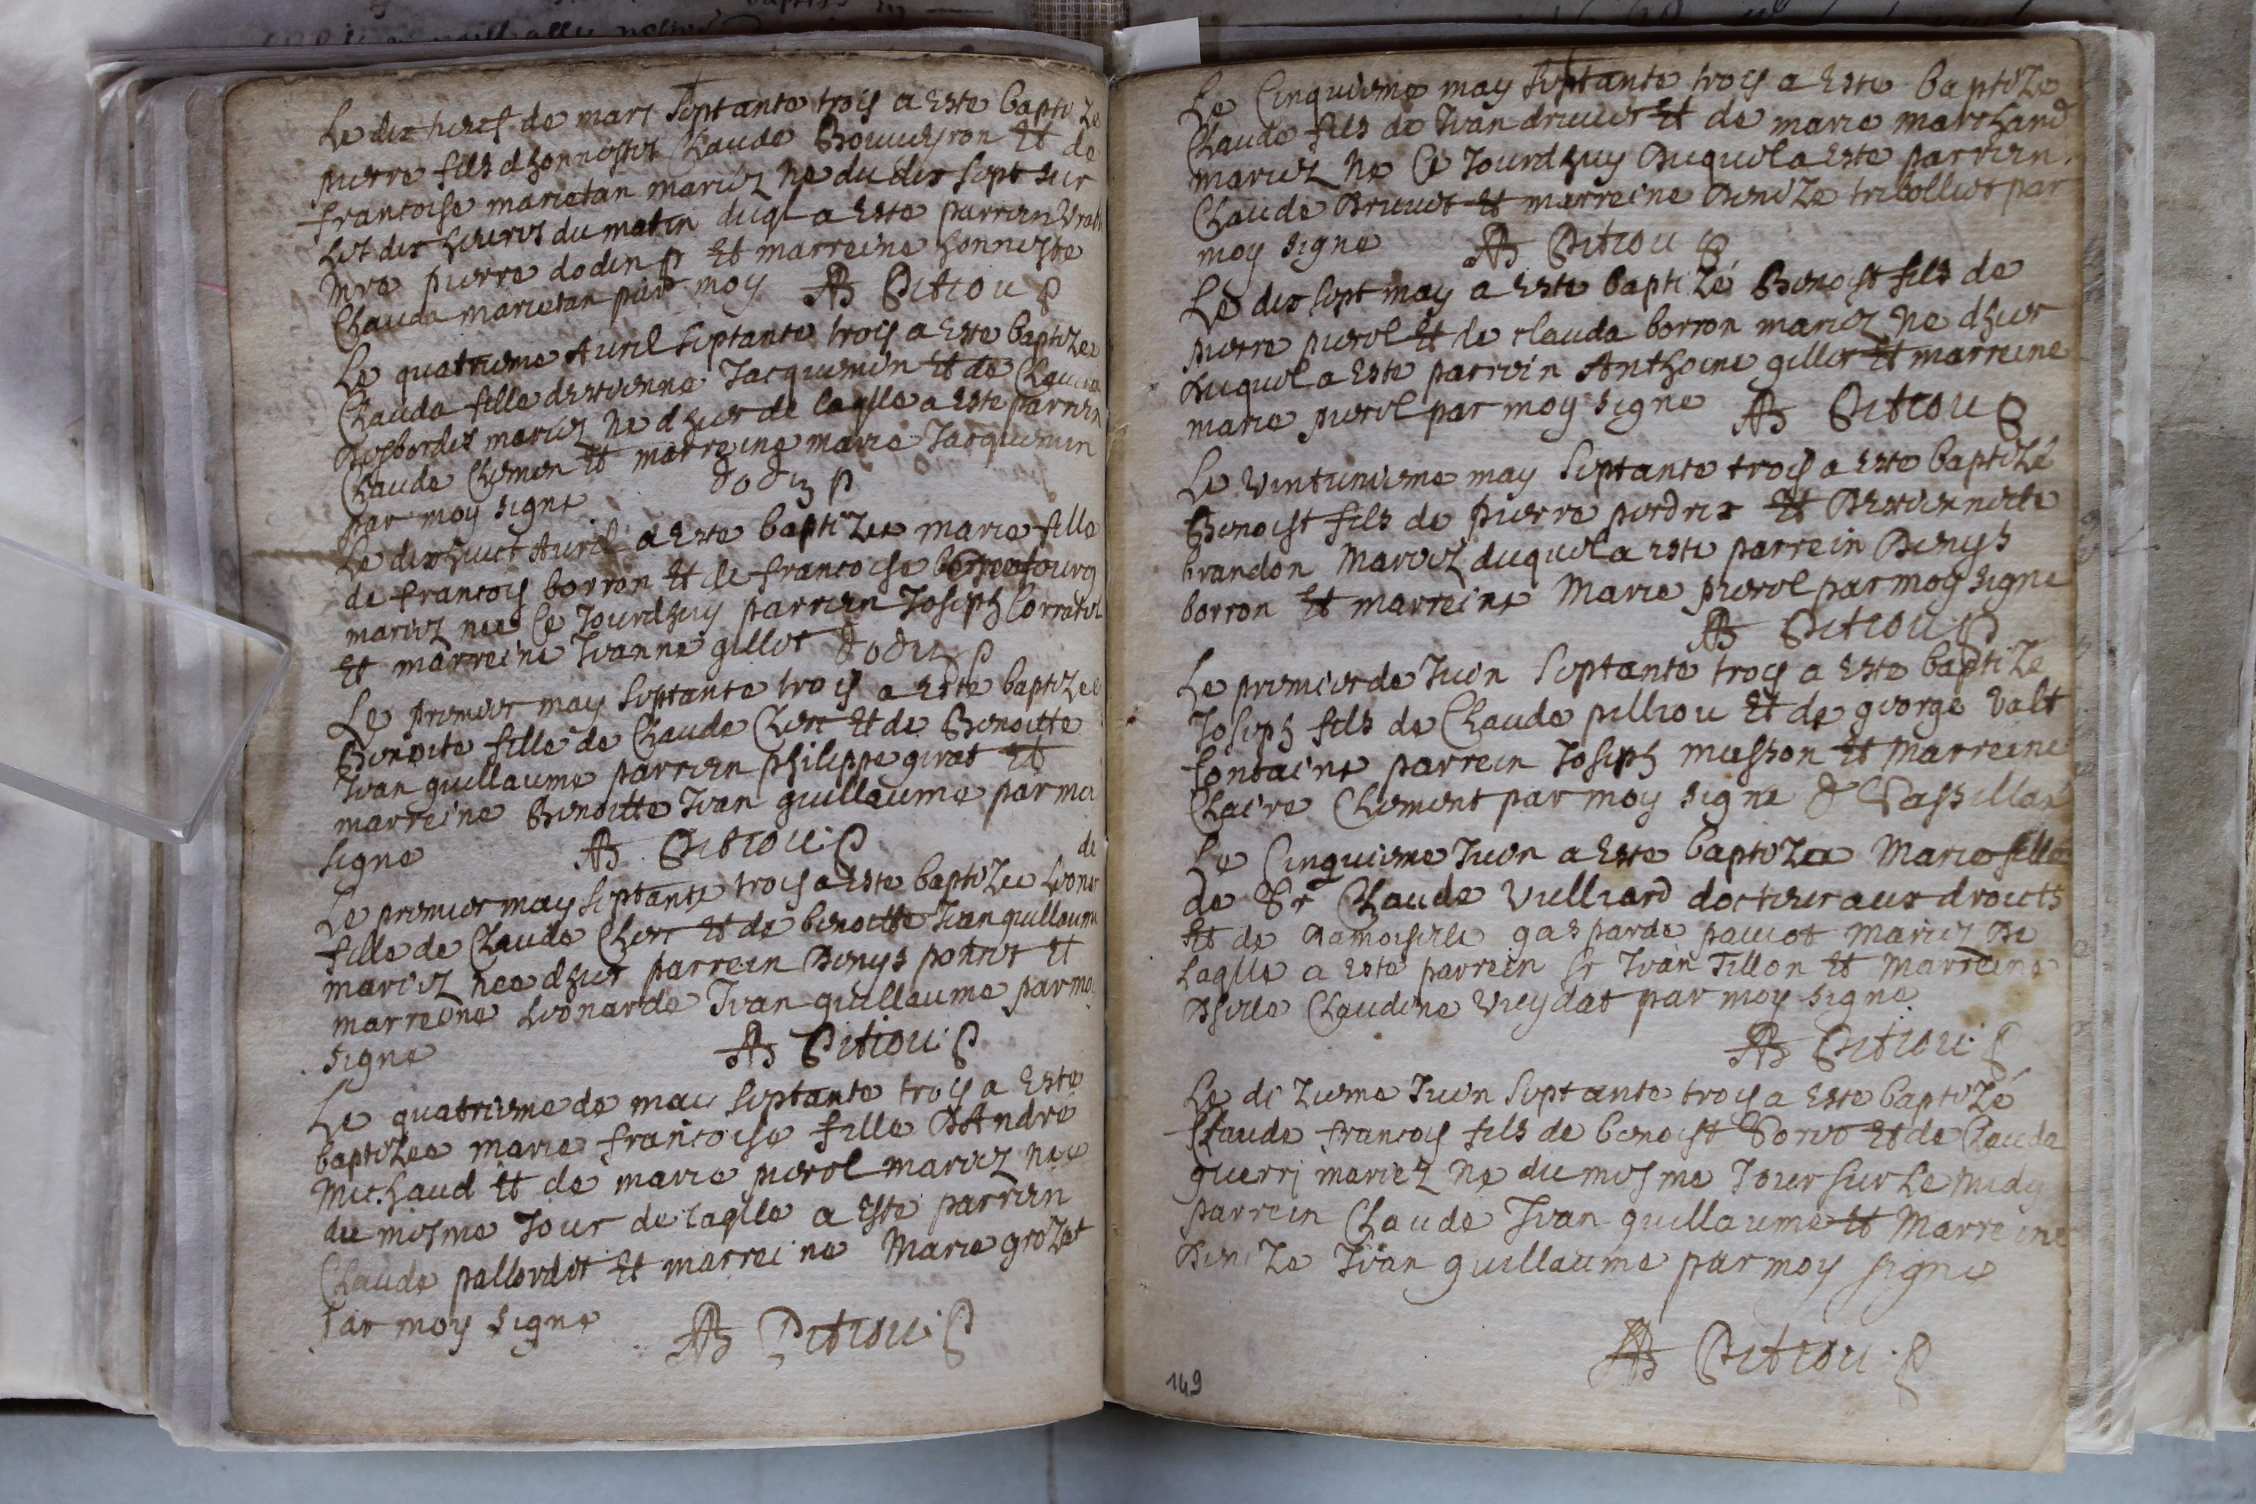 Le dix neuf de mars septante trois a este baptize
pierre fils dhonnestes Claude Bouveyron et de
francoise marietan mariez ne du dix sept sur
les dix heures du matin duql a este parrin
Mre pierre dodin et marreine honneste
Clauda marietan par moy AB Pitiou
Le quatrieme Avril septante trois a este baptizee
Clauda fille destienne Jacquemin et de Clauda
Desbordes mariez ne dhier de laqlle a este parrin
Claude Clemen et marreine marie Jacquemin
par moy signe dodin
Le dixhuict Avril a este baptizee marie fille
de francois borron et de francoise
mariez nee ce Jourdhuy parrin Joseph
et marreine Jeanne gillot dodin
Le premier may septante trois a este baptizee
Benoite fille de Claude Clerc et de Benoitte
Jean guillaume parrin philippe girat et
marreine Benoitte Jean guillaume par moi
signe AB Pitiou
de
Le premier may septante trois a este baptizee Leonar
fille de Claude Clerc et de benoitte Jean guillaume
mariez nee dhier parrein Denys pottret et
marreine Leonarde Jean guillaume par moy
signe AB Pitiou
Le quatrieme de may septante trois a este
baptizee marie francoise fille DAndre
Michaud et de marie pierol mariez nee
du mesme Jour de laqlle a este parrin
Claude pallordet et marreine Marie grozet
par moy signe AB Pitiou
Le Cinquieme may septante trois a este baptize
Claude fils de Jean druet et de marie marchand
mariez ne ce Jourdhuy Duquel a este parrin
Claude Druet et marreine Denize tribolliet par
moy signe AB Pitiou
Le dix sept may a este baptizé Benoist fils de
pierre pierol et de clauda borron mariez ne dhier
duquel a este parrin Anthoine gillet et marreine
marie pierol par moy signe AB Pitiou
Le vintunieme may septante trois a este baptizé
Benoist fils de pierre perdrix et Destiennette
brandon Mariez duquel a este parrein Denys
borron et marreine Marie pierol par moy signe
AB Pitiou
Le premier de Juin septante trois a este baptizé
Joseph fils de Claude pilliou et de george valt
fontaine parrein Joseph musson et marreine
Claire Clement par moy signe
Le Cinquieme Juin a este baptizee Marie fille
de Sr Claude Vulliard docteur aux droicts
et de Damoiselle gasparde paviot mariez De
laqlle a este parrein Sr Jean Tillon et Marreine
Dselle Claudine Vieydat par moy signe
AB Pitiou
Le dizieme Juin septante trois a este baptizé
Claude francois fils de benoist Sorvo et de Clauda
guerry mariez ne du mesme Jour sur le midy
parrein Claude Jean guillaume et Marreine
Denize Jean guillaume par moy signe
AB Pitiou
149